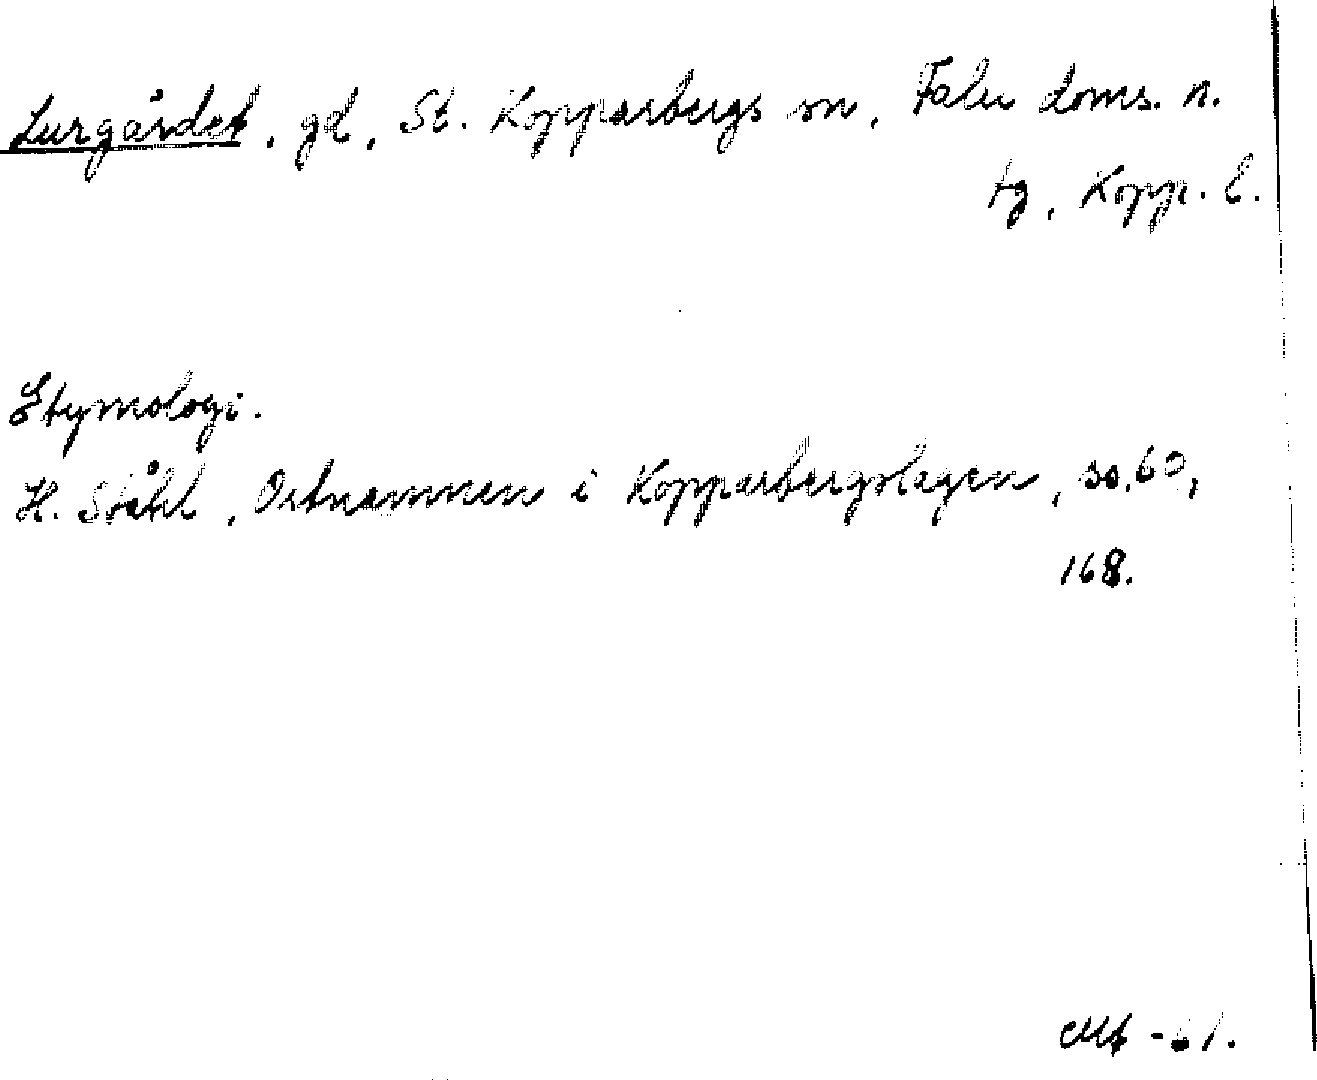 Lurgårdet, gd, St. Kopparbergs sn, Falu doms. n.
tg, Kopp. l.
Etymologi.
H. Ståhl, Ortnamnen i Kopparbergslagen, ss. 60,
168.
-61.